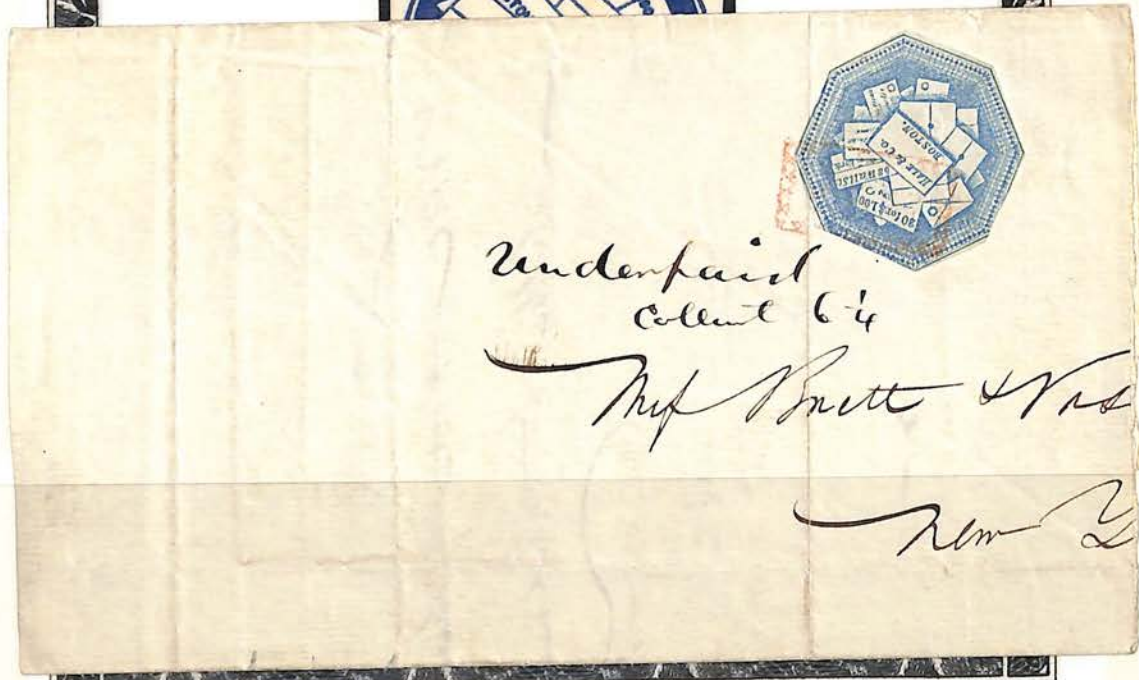 HALE & CO.
BOSTON.
Wall St
30 for $1.00
Underpaid
Collect 6¼
Brett & Vos
New Y